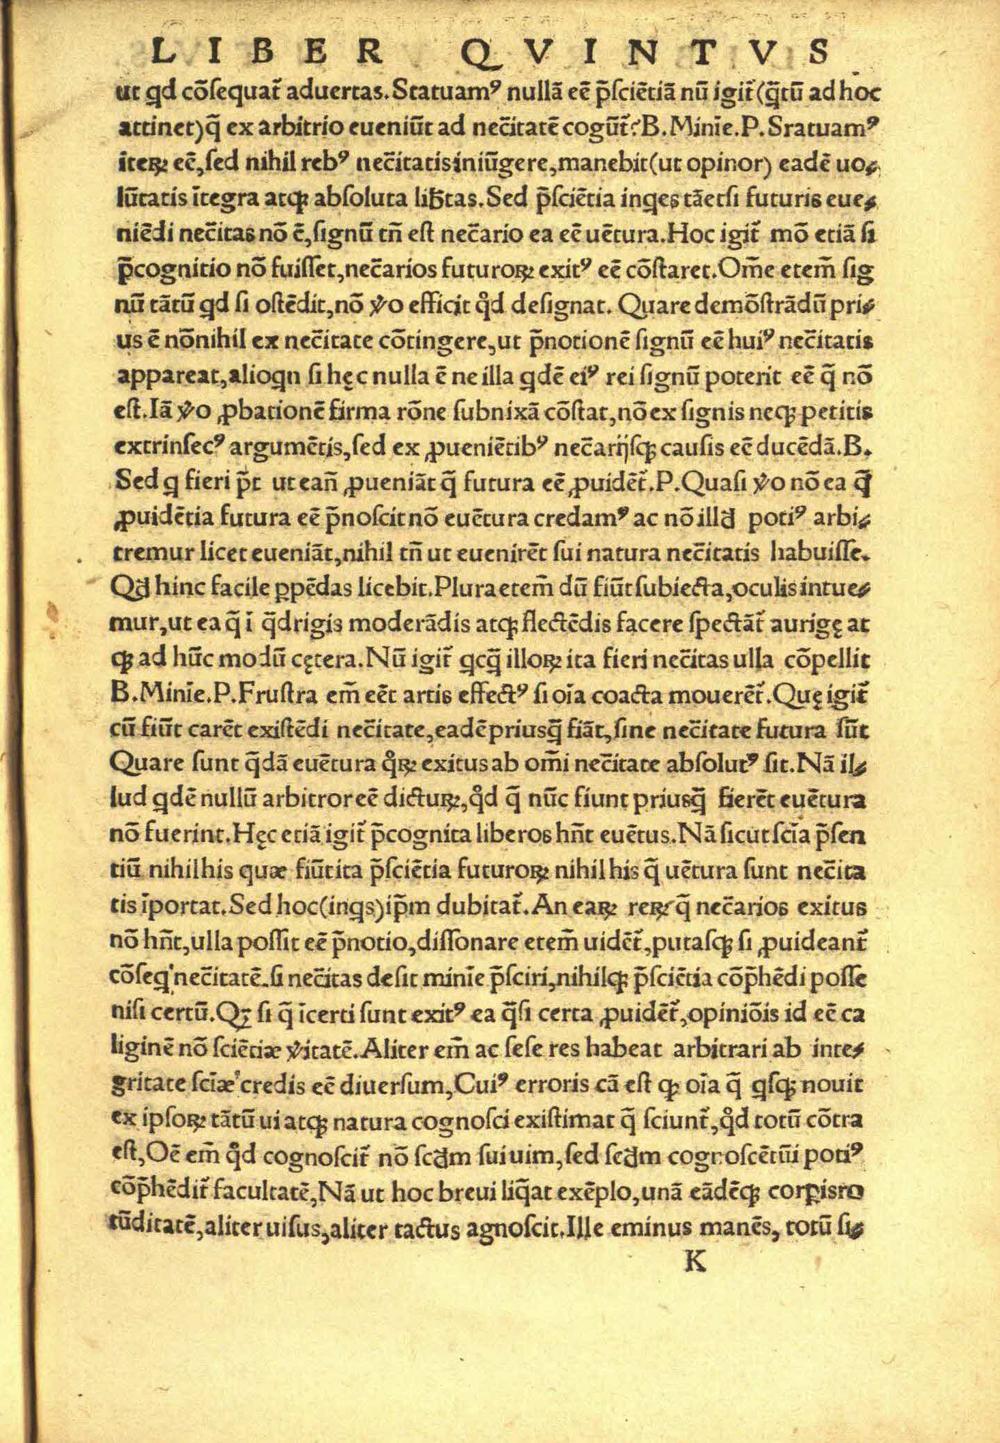 LIBER QVINTVS
ut qd cōsequat̃ aduertas.Statuamꝰ nullā eē p̃sciētiā nū igit̃(q̃tū ad hoc
attinet)q̃ ex arbitrio eueniūt ad nec̃itatē cogūt̃?B.Minīe.P.Sratuamꝰ
iteꝝ eē,sed nihil rebꝰ nec̃itatis iniūgere,manebit(ut opinor) eadē uo⸗
lūtatis ītegra atqꝫ absoluta lib̃tas.Sed p̃sciētia inqes tāetsi futuris eue⸗
niēdi nec̃itas nō ē,signū tñ est nec̃ario ea eē uētura.Hoc igit̃ mō etiā si
p̃cognitio nō fuisset,nec̃arios futuroꝝ exitꝰ eē cōstaret.Om̃e etem̃ sig
nū tātū qd si ostēdit,nō ꝟo efficit qͦd designat. Quare demōstrādū pri⸗
us ē nōnihil ex nec̃itate cōtingere,ut p̃notionē signū eē huiꝰ nec̃itatis
appareat,alioqn si hęc nulla ē ne illa qdē eiꝰ rei signū poterit eē q̃ nō
est.Iā ꝟo ꝓbationē firma rōne subnixā cōstat,nō ex signis neqꝫ petitis
extrinsecꝰ argumētis,sed ex ꝓueniētibꝰ nec̃arijsqꝫ causis eē ducēdā.B.
Sed q fieri p̃t ut eañ ꝓueniāt q̃ futura eē ꝓuidēt̃.P.Quasi ꝟo nō ea q̃
ꝓuidētia futura eē p̃noscit nō euētura credamꝰ ac nō illđ potiꝰ arbi⸗
tremur licet eueniāt,nihil tñ ut euenirēt sui natura nec̃itatis habuisse.
Qđ hinc facile ꝑpēdas licebit.Plura etem̃ dū fiūt subiecta,oculis intue⸗
mur,ut ea q̃ ī q̃drigis moderādis atqꝫ flectēdis facere spectāt̃ aurigę at
qꝫ ad hūc modū cętera.Nū igit̃ qcq̃ illoꝝ ita fieri nec̃itas ulla cōpellit
B.Minīe.P.Frustra em̃ eēt artis effectꝰ si oīa coacta mouerēt̃.Quę igit̃
cū fiūt carēt existēdi nec̃itate,eadē priusq̃ fiāt,sine nec̃itate futura sūt
Quare sunt q̃dā euētura qͦꝝ exitus ab om̃i nec̃itate absolutꝰ sit.Nā il⸗
lud qdē nullū arbitror eē dictuꝝ,qͦd q̃ nūc fiunt priusq̃ fierēt euētura
nō fuerint.Hęc etiā igit̃ p̃cognita liberos hñt euētus.Nā sicut scīa p̃sen
tiū nihil his quæ fiūt ita p̃sciētia futuroꝝ nihil his q̃ uētura sunt nec̃ita
tis īportat.Sed hoc(inqs)ip̃m dubitat̃.An eaꝝ reꝝ q̃ nec̃arios exitus
nō hñt,ulla possit eē p̃notio,dissonare etem̃ uidēt̃,putasqꝫ si ꝓuideant̃
cōseq' nec̃itatē.si nec̃itas desit minīe p̃sciri,nihilqꝫ p̃sciētia cōp̃hēdi posse
nisi certū.Qꝫ si q̃ īcerti sunt exitꝰ ea q̃si certa ꝓuidēt̃,opiniōis id eē ca
liginē nō sciētiæ ꝟitatē.Aliter em̃ ac sese res habeat arbitrari ab inte⸗
gritate scīæ credis eē diuersum,Cuiꝰ erroris cā est qꝫ oīa q̃ qsqꝫ nouit
ex ipsoꝝ tātū ui atqꝫ natura cognosci existimat q̃ sciunt̃,qͦd totū cōtra
est,Oē em̃ qͦd cognoscit̃ nō scđm sui uim,sed scđm cognoscētiū potiꝰ
cōp̃hēdit̃ facultatē,Nā ut hoc breui liq̃at exēplo,unā eādēqꝫ corꝑis ro
tūditatē,aliter uisus,aliter tactus agnoscit.Ille eminus manēs, totū si⸗
K